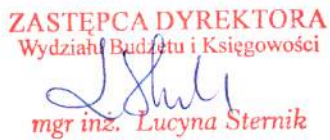 ZASTĘPCA DYREKTORA
Wydziału Budżetu i Księgowości
mgr inż. Lucyna Sternik